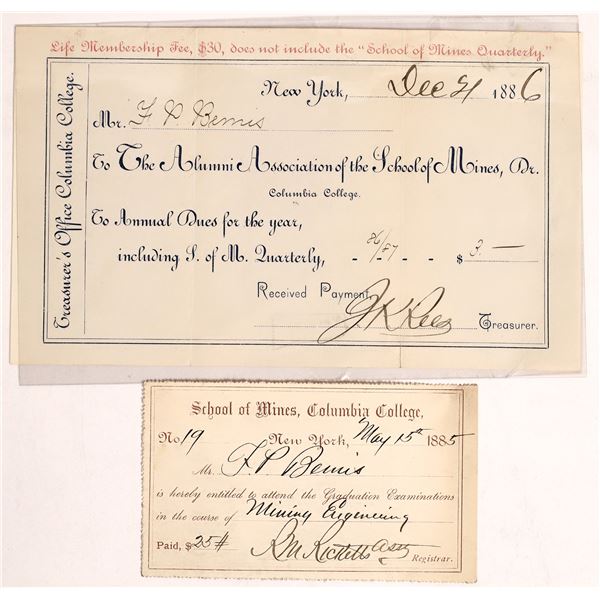 Life Membership Fee, $30, does not include the "School of Mines Quarterly."
Treasurer's Office Columbia College.
New York, Dec 21 1886
Mr. F P Bemis
To The Alumni Association of the School of Mines, Dr.
Columbia College.
To Annual Dues for the year,
including S. of M. Quarterly, - 86/87 - - $ 3.—
Received Payment,
J K Rees Treasurer.
School of Mines, Columbia College,
No 19 New York, May 15th 1885
Mr. F. P. Bemis
is hereby entitled to attend the Graduation Examinations
in the course of Mining Engineering
Paid, $25 R M Ricketts Asst
Registrar.